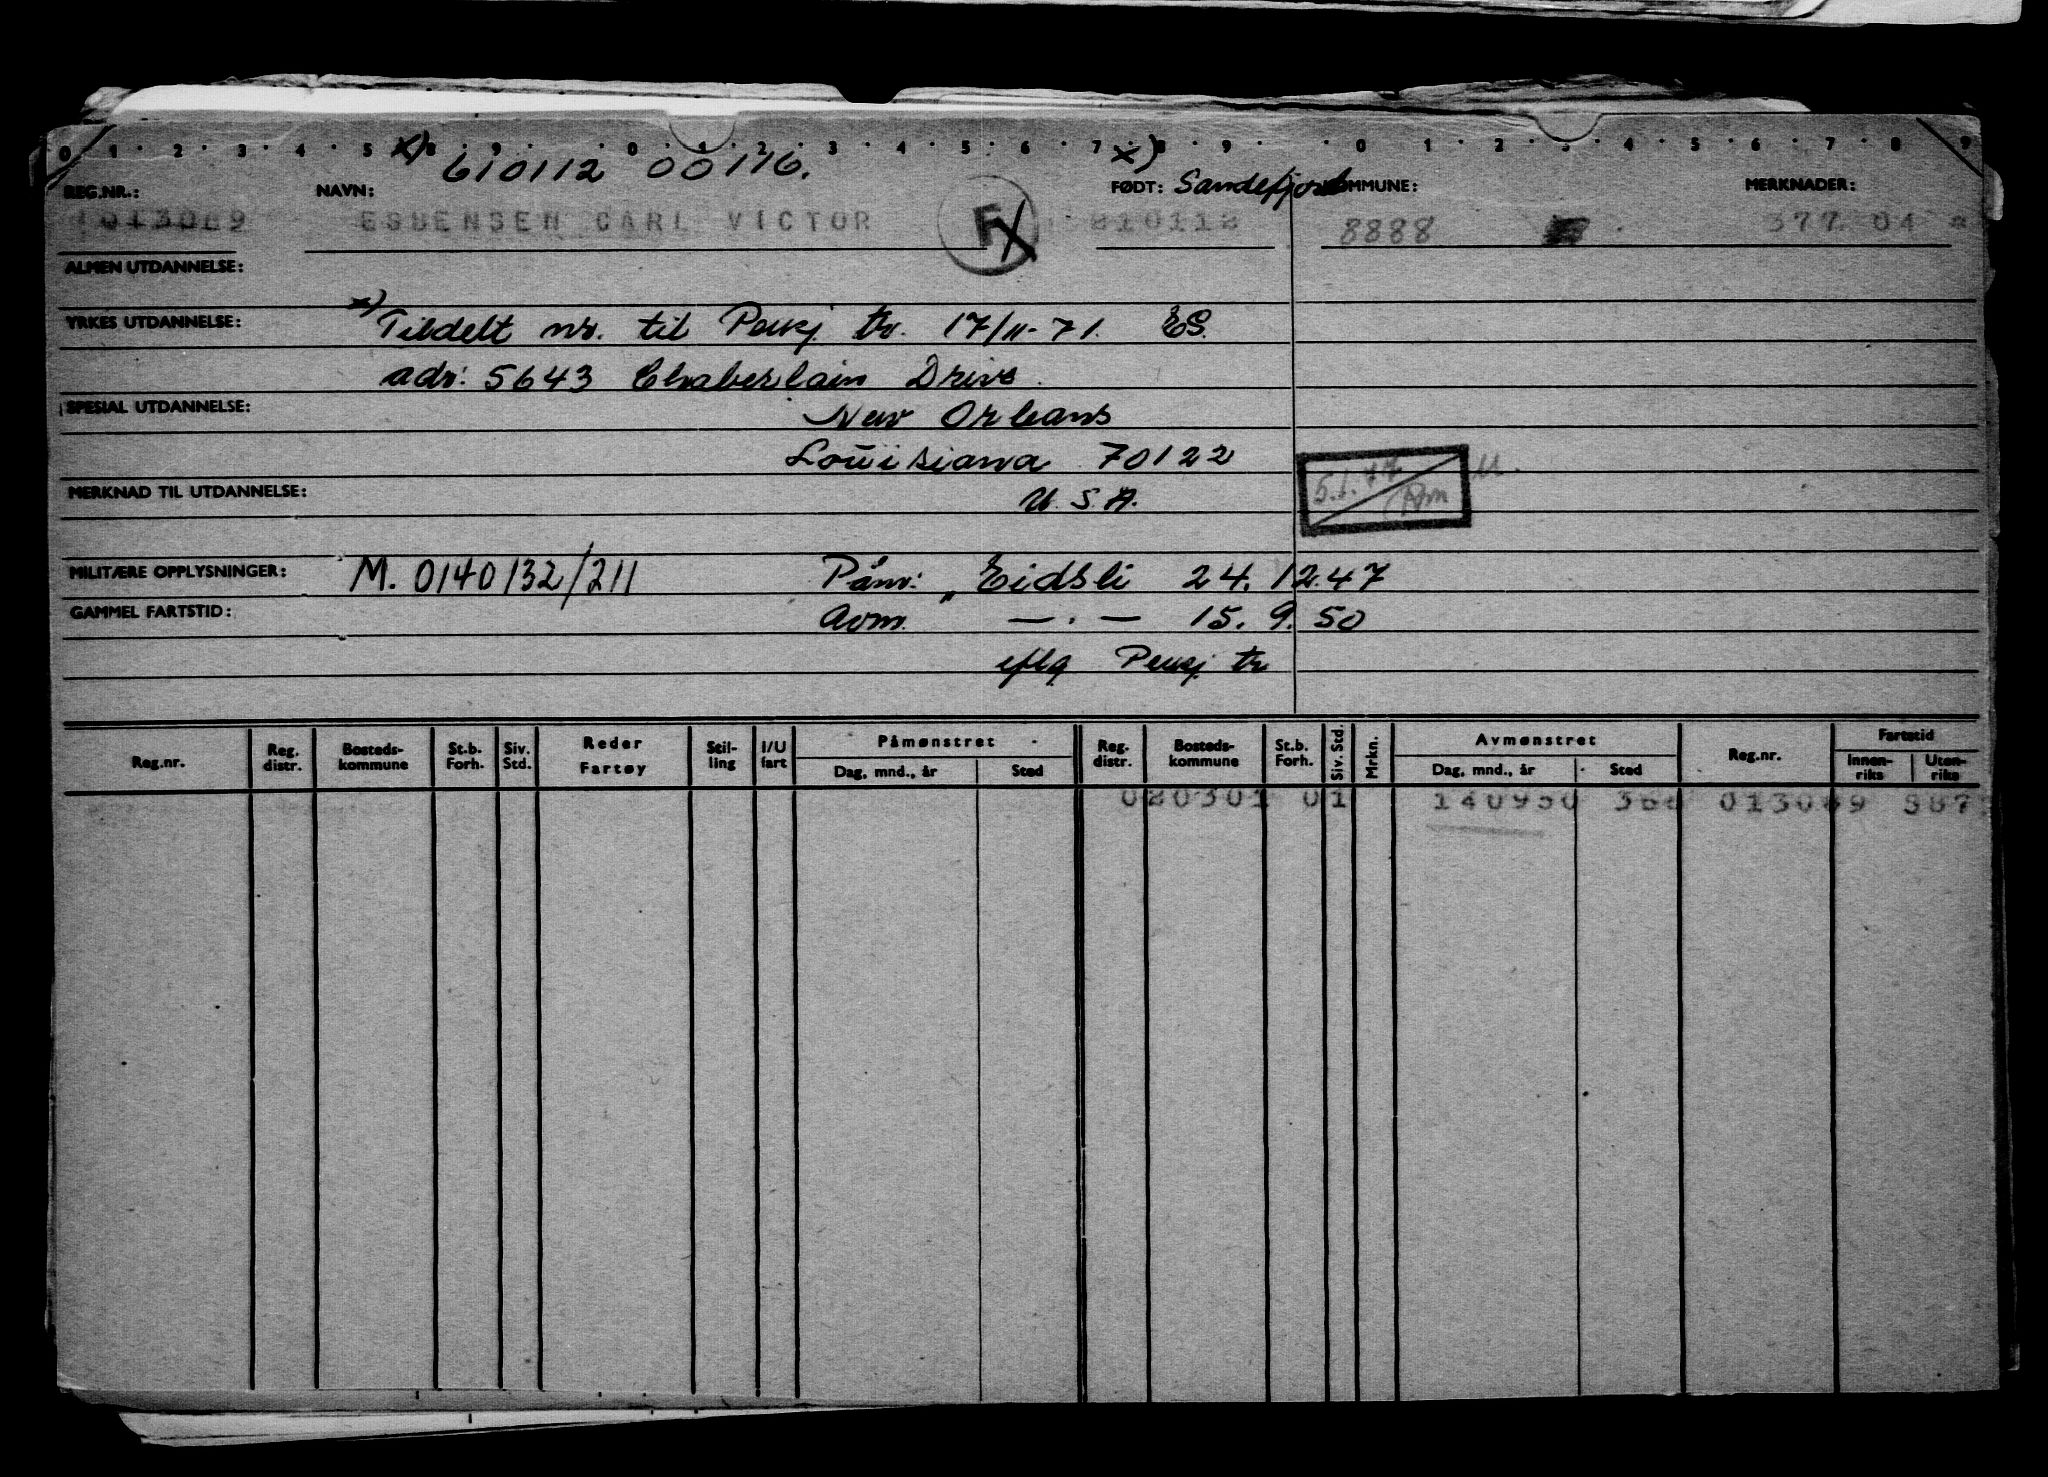 0 1 2 3 4 5 8 9 0 1 2 3 4 5 6 7 8 9 0 1 2 3 4 5 6 7 8 9
x) 610112 00116. x)
REG.NR.: NAVN: FØDT: Sandefjord KOMMUNE: MERKNADER:
1013089 ESBENSEN CARL VICTOR F 810112 8888 377 04
ALMEN UTDANNELSE:
x)
YRKES UTDANNELSE: Tildelt nr. til Pensj. tr. 17/11-71. ES.
adr: 5643 Chaberlain Drive.
SPESIAL UTDANNELSE: New Orleans
Louisiana 70122
MERKNAD TIL UTDANNELSE: U.S.A. 5.1.77
MILITÆRE OPPLYSNINGER: M. 0140132/211 Påm: „ Eidsli 24.12.47
GAMMEL FARTSTID: Avm. — . — 15.9.50
iflg Pensj tr
Reg.nr. Reg. distr. Bosteds-kommune St.b. Forh. Siv. Std. Reder Fartøy Stil-ling I/U fart Påmønstret Dag, mnd., år Sted Reg. distr. Bosteds-kommune St.b. Forh. Siv. Std. Mrkn. Avmønstret Dag, mnd., år Sted Reg.nr. Fartstid Innen-riks Uten-riks
020301 01 140950 366 013089